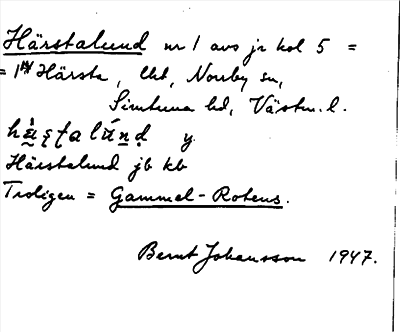 Härstalund nr 1 avs jr kol 5 =
= 1/4 Härsta, lht, Norrby sn,
Simtuna hd, Västm. l.
hä̀ṣṭalúṇḍ y.
Härstalund jb kb
Troligen = Gammel-Rotens.
Bernt Johansson 1947.